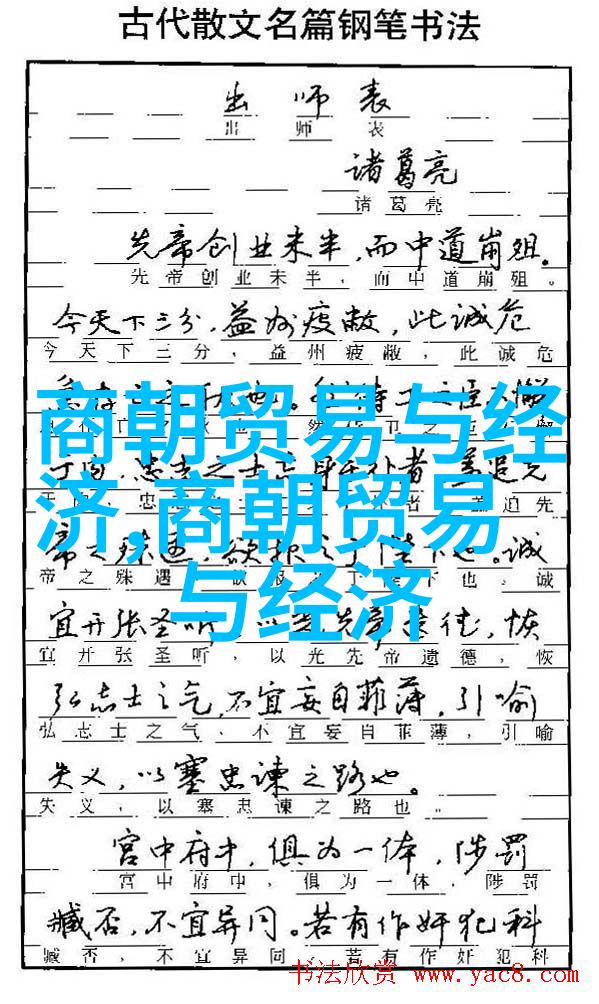 古代散文名篇钢笔书法
出师表
出师表
诸葛亮
诸葛亮
先帝创业未半,而中道崩殂。
先帝创业未半,而中道崩殂。
今天下三分,益州疲敝,此诚危
今天下三分,益州疲敝,此诚危
商朝贸易与经
济,商朝贸易
与经济
帝之殊遇
诚
宜开张圣听
恢
宜开张圣听,以光先帝遗德,恢
弘志士之气,不宜妄自菲薄,引喻
弘志士之气,不宜妄自菲薄,引喻
失义,以塞忠谏之路也。
失义,以塞忠谏之路也。
宫中府中,俱为一体,陟罚
宫中府中,俱为一体,陟罚
臧否,不宜异同。若有作奸犯科
臧否,不宜异同。若有作奸犯科
书法欣赏 www.yac8.com